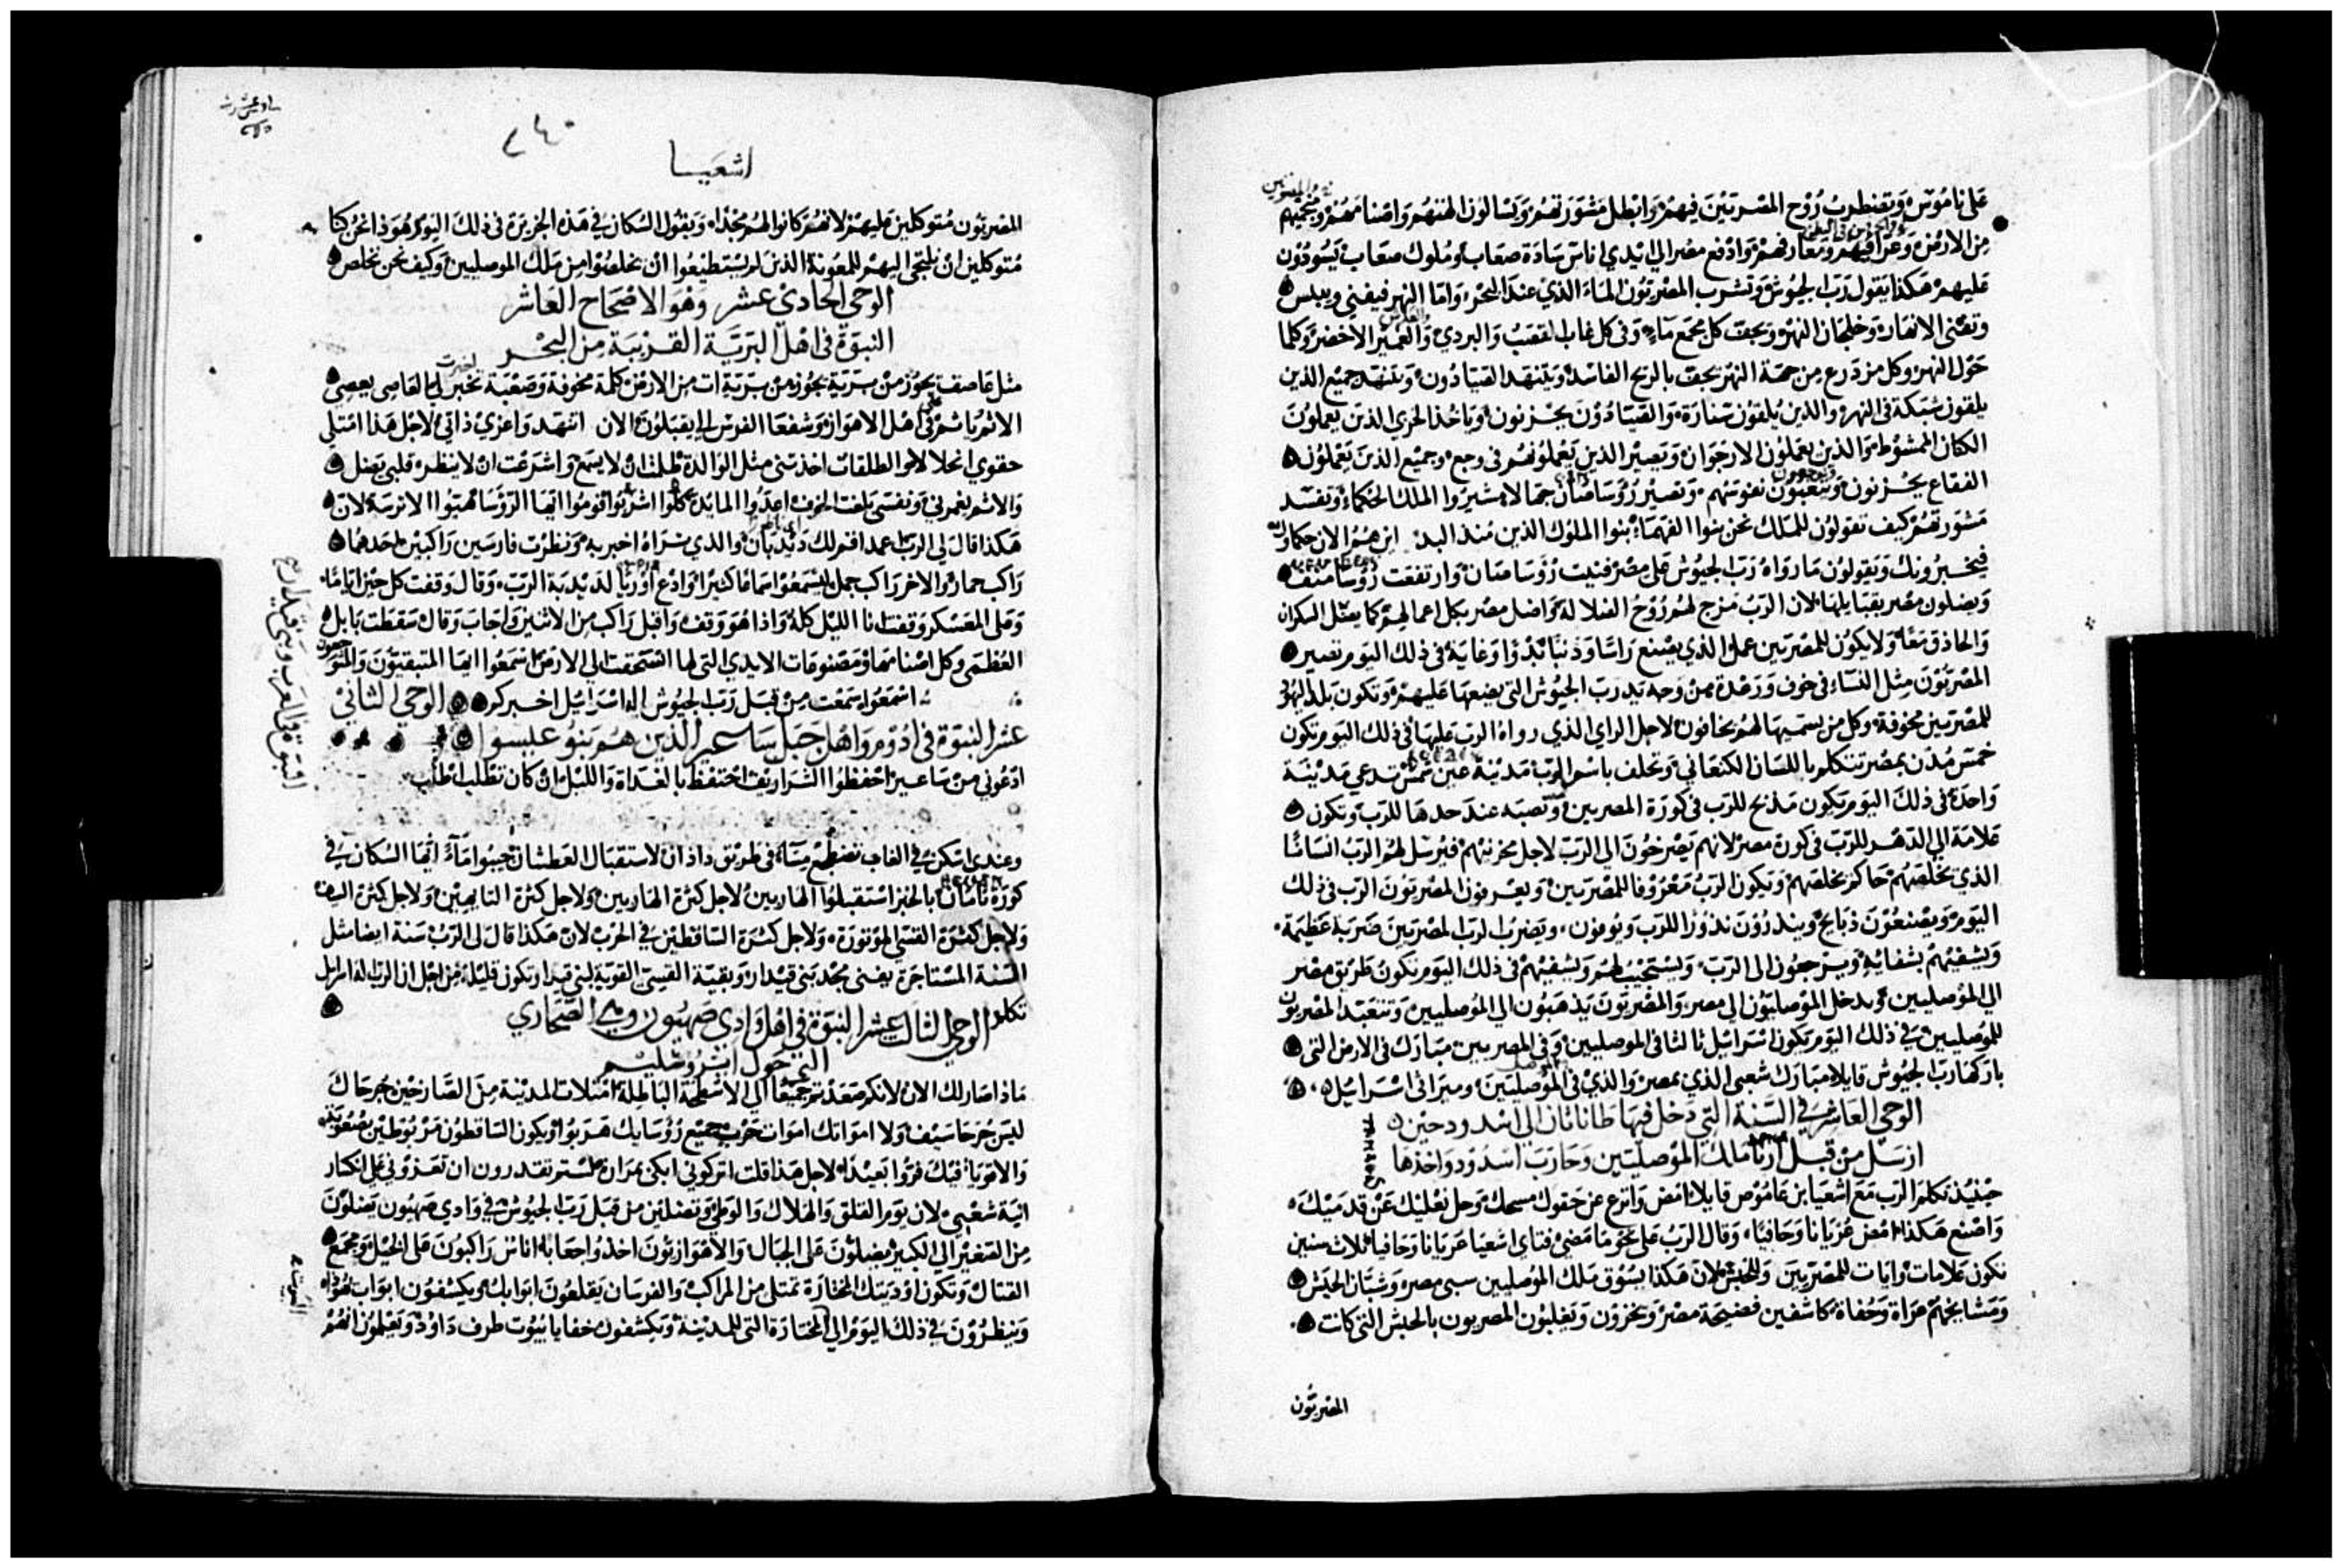 على ناموس وتضطرب روح المصريين فيهم وابطل مشورتهم ويسالون الهتهم واصنامهم ومنجميهم
من الارض وعرافيهم ومعارفهم وادفع مصر الي ايدي اناس سادة صعاب وملوك صعاب يسودون
عليهم هكذا يقول رب الجيوش وتشرب المصريون الماء الذي عند البحر واما النهر فيفني وييبس
وتفنى الانهار وخلجان النهر ويجف كل مجمع ماء وفى كل غاب القصب والبردي والعمير الاخضر وكلما
حول النهر وكل مزدرع من جهة النهر يجف بالريح الفاسد ويتنهد الصيادون ويتنهد جميع الذين
يلقون شبكة فى النهر والذين يلقون سنارة والصيادون يحزنون وياخذ الخزي الذين يعملون
الكتان الممشوط والذين يعملون الارجوان وتصير الذين يعملونهم فى وجع وجميع الذين يعملون
الفقاع يحزنون ويتعبون نفوسهم وتصير رؤسا صان جهالا مشيروا الملك الحكماء وتفسد
مشورتهم كيف تقولون للملك نحن بنوا الفهماء بنوا الملوك الذين منذ البدء اين هم الان حكماؤك
فيخبرونك ويقولون ماذا رواه رب الجيوش على مصر فنيت رؤسا صان وارتفعت رؤسا منف
ويضلون مصر بقبايلها لان الرب مزج لهم روح الضلالة واضل مصر بكل اعمالهم كما يضل السكران
والحاذق معا ولا يكون للمصريين عمل الذي يصنع راسا وذنبا بدؤا وغاية فى ذلك اليوم تصير
المصريون مثل النساء فى خوف ورعدة من وجه يد رب الجيوش التى يضعها عليهم وتكون بلد اليهود
للمصريين مخوفة وكل من يسميها لهم يخافون لاجل الراي الذي رواه الرب عليها فى ذلك اليوم تكون
خمس مدن بمصر تتكلم باللسان الكنعانى وتحلف باسم الرب مدينة عين شمس تدعي مدينة
واحدة فى ذلك اليوم يكون مذبح للرب فى كورة المصريين ونصبه عند حدها للرب وتكون
علامة الى الدهر للرب فى كورة مصر لانهم يصرخون الى الرب لاجل محزنيهم فيرسل لهم الرب انسانا
الذي يخلصهم حاكم يخلصهم ويكون الرب معروفا للمصريين ويعرفون المصريون الرب فى ذلك
اليوم ويصنعون ذبايح وينذرون نذورا للرب ويوفون ويضرب الرب المصريين ضربة عظيمة
ويشفيهم بشفائه ويرجعون الى الرب ويستجيب لهم ويشفيهم فى ذلك اليوم تكون طريق مصر
الى الموصليين ويدخل الموصليون الى مصر والمصريون يذهبون الى الموصليين وتتعبد المصريون
للموصليين في ذلك اليوم يكون اسرائيل ثالثا فى الموصليين وفى المصريين مبارك فى الارض التى
باركها رب الجيوش قايلا مبارك شعبى الذي بمصر والذي فى الموصليين وميراثى اسرائيل
الوحى العاشر في السنة التى دخل فيها طاناثان الى اسدود حين
ارسل من قبل ارنا ملك الموصليين وحارب اسدود واخذها
حينيذ تكلم الرب مع اشعيا ابن عاموص قايلا امض وانزع عن حقوك مسحك وحل نعليك عن قدميك
واصنع هكذا امض عريانا وحافيا وقال الرب على نحو ما مضى فتاي اشعيا عريانا وحافيا ثلاث سنين
تكون علامات وايات للمصريين وللحبش لان هكذا يسوق ملك الموصليين سبى مصر وشبان الحبش
ومشايخهم عراة وحفاة كاشفين فضيحة مصر ويخزون ويغلبون المصريون بالحبش التى كانت
المصريون
٢٤٠
اشعيا
المصريون متوكلين عليهم لانهم كانوا لهم مجدا ويقول السكان في هذه الجزيرة فى ذلك اليوم هوذا نحن كنا
متوكلين ان نلتجى اليهم للمعونة الذين لم يستطيعوا ان يخلصوا من ملك الموصليين وكيف نحن نخلص
الوحى الحادي عشر وهو الاصحاح العاشر
النبوة فى اهل البرية القريبة من البحر
مثل عاصف يجوز من برية يجوز من برية ات من الارض كلمة مخوفة وصعبة تخبر لي العاصى يعصى
الاثم ياثم فى اهل الاهواز وشفعا الفرس الي يقبلون الان اتنهد واعزي ذاتى لاجل هذا امتلى
حقوي انحلالا والطلقات اخذتنى مثل الوالدة ظلمت ان لا يسمع واشرعت ان لا ينظر قلبى يضل
والاثم يغمرني ونفسى بلغت الخوف اعدوا المايدة كلوا اشربوا قوموا ايها الرؤسا هيئوا الاترسة لان
هكذا قال لى الرب اعمد اقم لك ديدبان والذي تراه اخبر به ونظرت فارسين راكبين احدهما
راكب حمار والاخر راكب جمل ليسمعوا سماعا كثيرا وادع اوريا لديدبة الرب وقال وقفت كل حين اياما
وعلى المعسكر وقفت انا الليل كله واذا هو وقف واقبل راكب من الاثنين واجاب وقال سقطت بابل
العظمى وكل اصنامها ومصنوعات الايدي التى لها انسحقت الى الارض اسمعوا ايها المتبقيون والمتوجعون
اسمعوا ما سمعت من قبل رب الجيوش اله اسرائيل اخبركم الوحى الثانى
عشر النبوة فى ادوم واهل جبل ساعير الذين هم بنو عيسو
ادعوني من ساعير احفظوا الشراريف احتفظ بالغداة والليل ان كان تطلب اطلب
وعندي اسكن في الغاب تضطجع مساء فى طريق دادان لاستقبال العطشان جيبوا ماء ايها السكان في
كورة تامان بالخبز استقبلوا الهاربين لاجل كثرة الهاربين ولاجل كثرة التايهين ولاجل كثرة السيف
ولاجل كثرة القسى الموتورة ولاجل كثرة الساقطين في الحرب لان هكذا قال لى الرب سنة ايضا مثل
السنة المستاجرة يفنى مجد بنى قيدار وبقية القسى القوية لبنى قيدار تكون قليلة من اجل ان الرب اله اسرايل
تكلم الوحى الثالث عشر النبوة فى اهل وادي صهيون وهى الصحاري
التى حول ايروشليم
ماذا صار لك الان لانكم صعدتم جميعا الي الاسطحة الباطلة امتلات المدينة من الصارخين جرحاك
ليس جرحا سيف ولا امواتك اموات حرب جميع رؤسايك هربوا ويكون الساقطون مربوطين بصعوبة
والاقويا فيك فروا بعيدا لاجل هذا قلت اتركونى ابكى بمرارة لستم تقدرون ان تعزونى على انكسار
ابنة شعبي لان يوم القلق والهلاك والوطي وتضللين من قبل رب الجيوش في وادي صهيون يضلون
من الصغير الى الكبير يضلون على الجبال والاهوازيون اخذوا جعابا اناس راكبون على الخيل ومجمع
القتال وتكون اوديتك المختارة تمتلى من المراكب والفرسان يقلعون ابوابك ويكشفون ابواب يهوذا
وينظرون في ذلك اليوم الى المختارة التى للمدينة ويكشفون خفايا بيوت طرف داود ويعلمون انهم